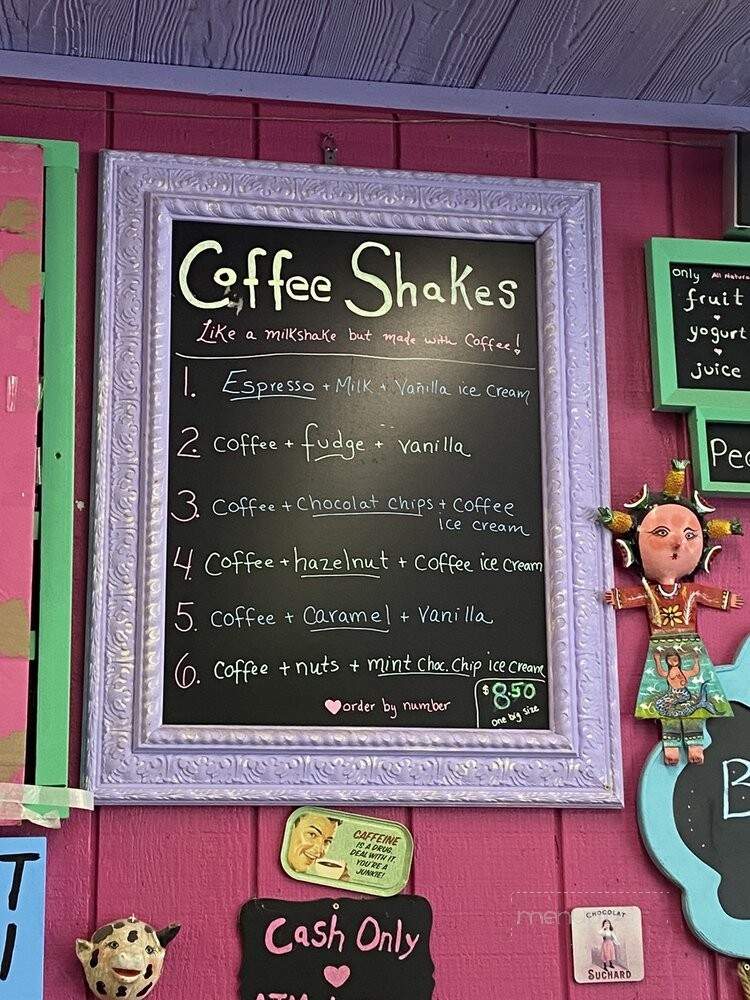 Coffee Shakes
Like a milkshake but made with Coffee!
1. Espresso + Milk + Vanilla ice Cream
2. Coffee + fudge + vanilla
3. Coffee + Chocolat chips + Coffee
ice cream
4. Coffee + hazelnut + Coffee ice cream
5. Coffee + Caramel + Vanilla
6. Coffee + nuts + mint Choc. Chip ice Cream
order by number
$8.50
one big size
only All Natural
fruit
yogurt
juice
CAFFEINE
IS A DRUG.
DEAL WITH IT.
YOU'RE A
JUNKIE!
Cash Only
CHOCOLAT
SUCHARD